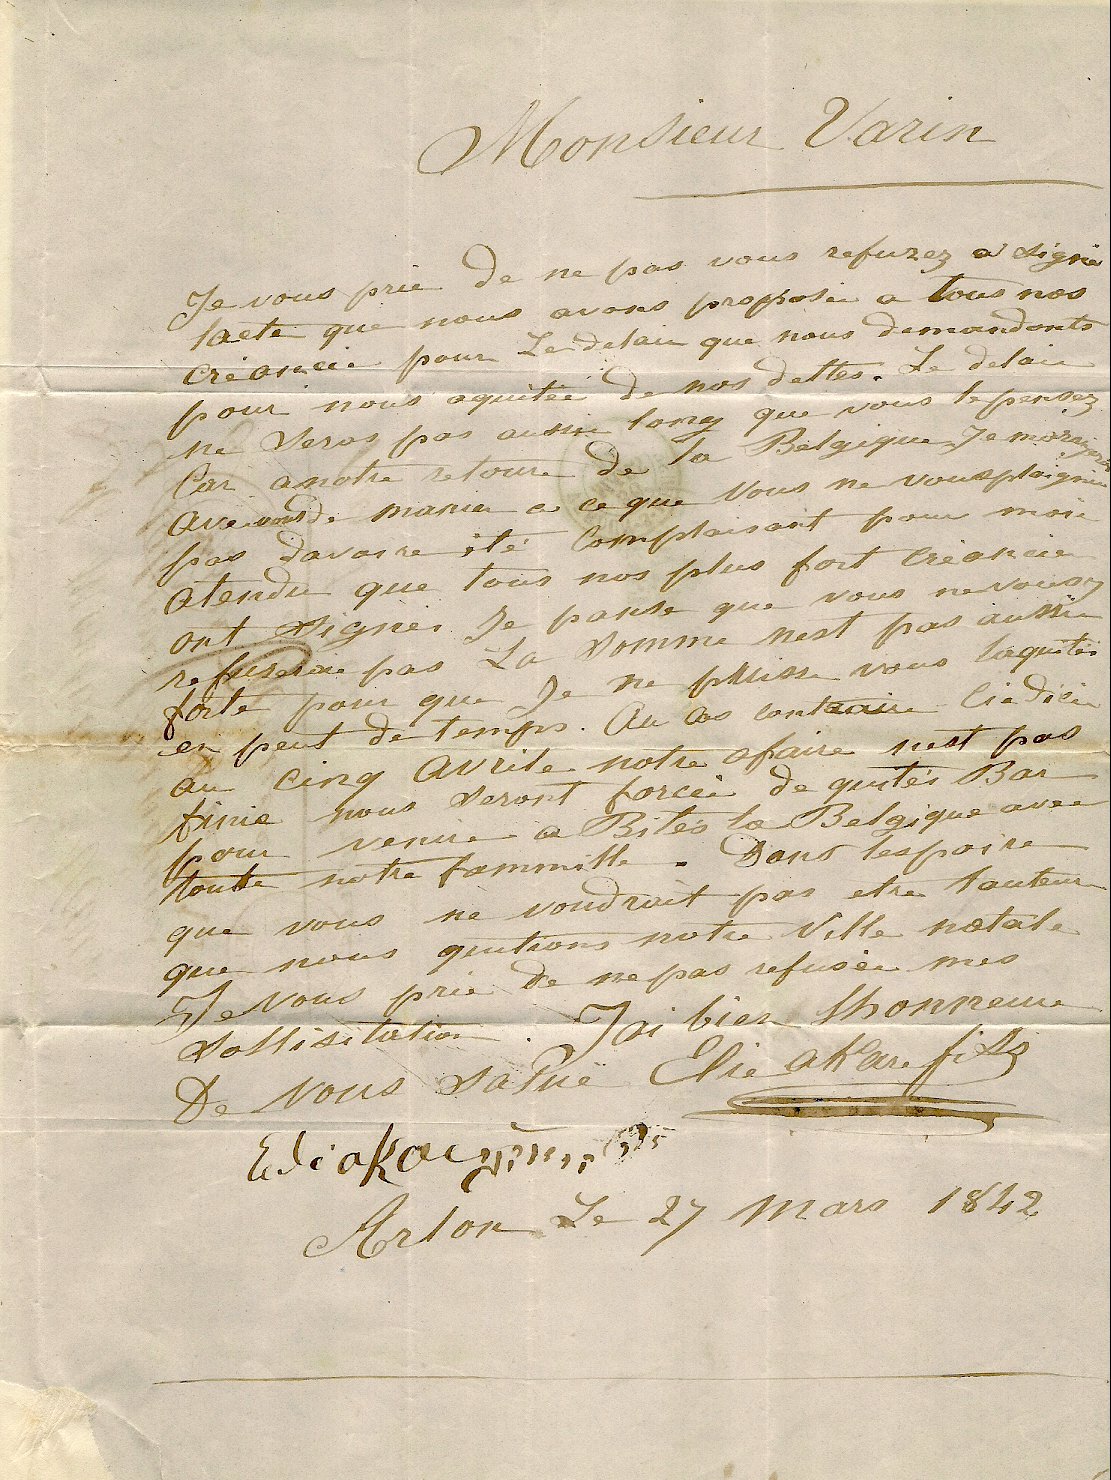 Monsieur Varin
Je vous prie de ne pas vous refuzez a signé
lacte que nous avons proposée a tous nos
créancié pour Le delaie que nous demandonts
pour nous aquitée de nos dettes. Le delaie
ne seras pas aussie long que vous le pensez
Car a notre retoure de la Belgique Je
de manier a ce que Vous ne vous plaignie
pas davoire été Complaisant pour moie
atendu que tous nos plus fort créancie
ont signéi Je panse que vous ne vousez
refuseraie pas La somme nest pas aussie
forte pour que Je ne puisse vous laquités
en peut de temps. Au cas contraire Ciedicie
au cinq Avrile notre afaire nest pas
finie nous seront forcée de quités Bar
pour venire a Bités la Belgique avec
toutte notre fammille. Dans lespoire
que vous ne voudrait pas etre lauteur
que nous quitions notre Ville natale
Je Vous prie de ne pas refusée mes
sollisitation. Jai bien lhonneure
De Vous Salué Elie akare fils
Arlon Le 27 Mars 1842